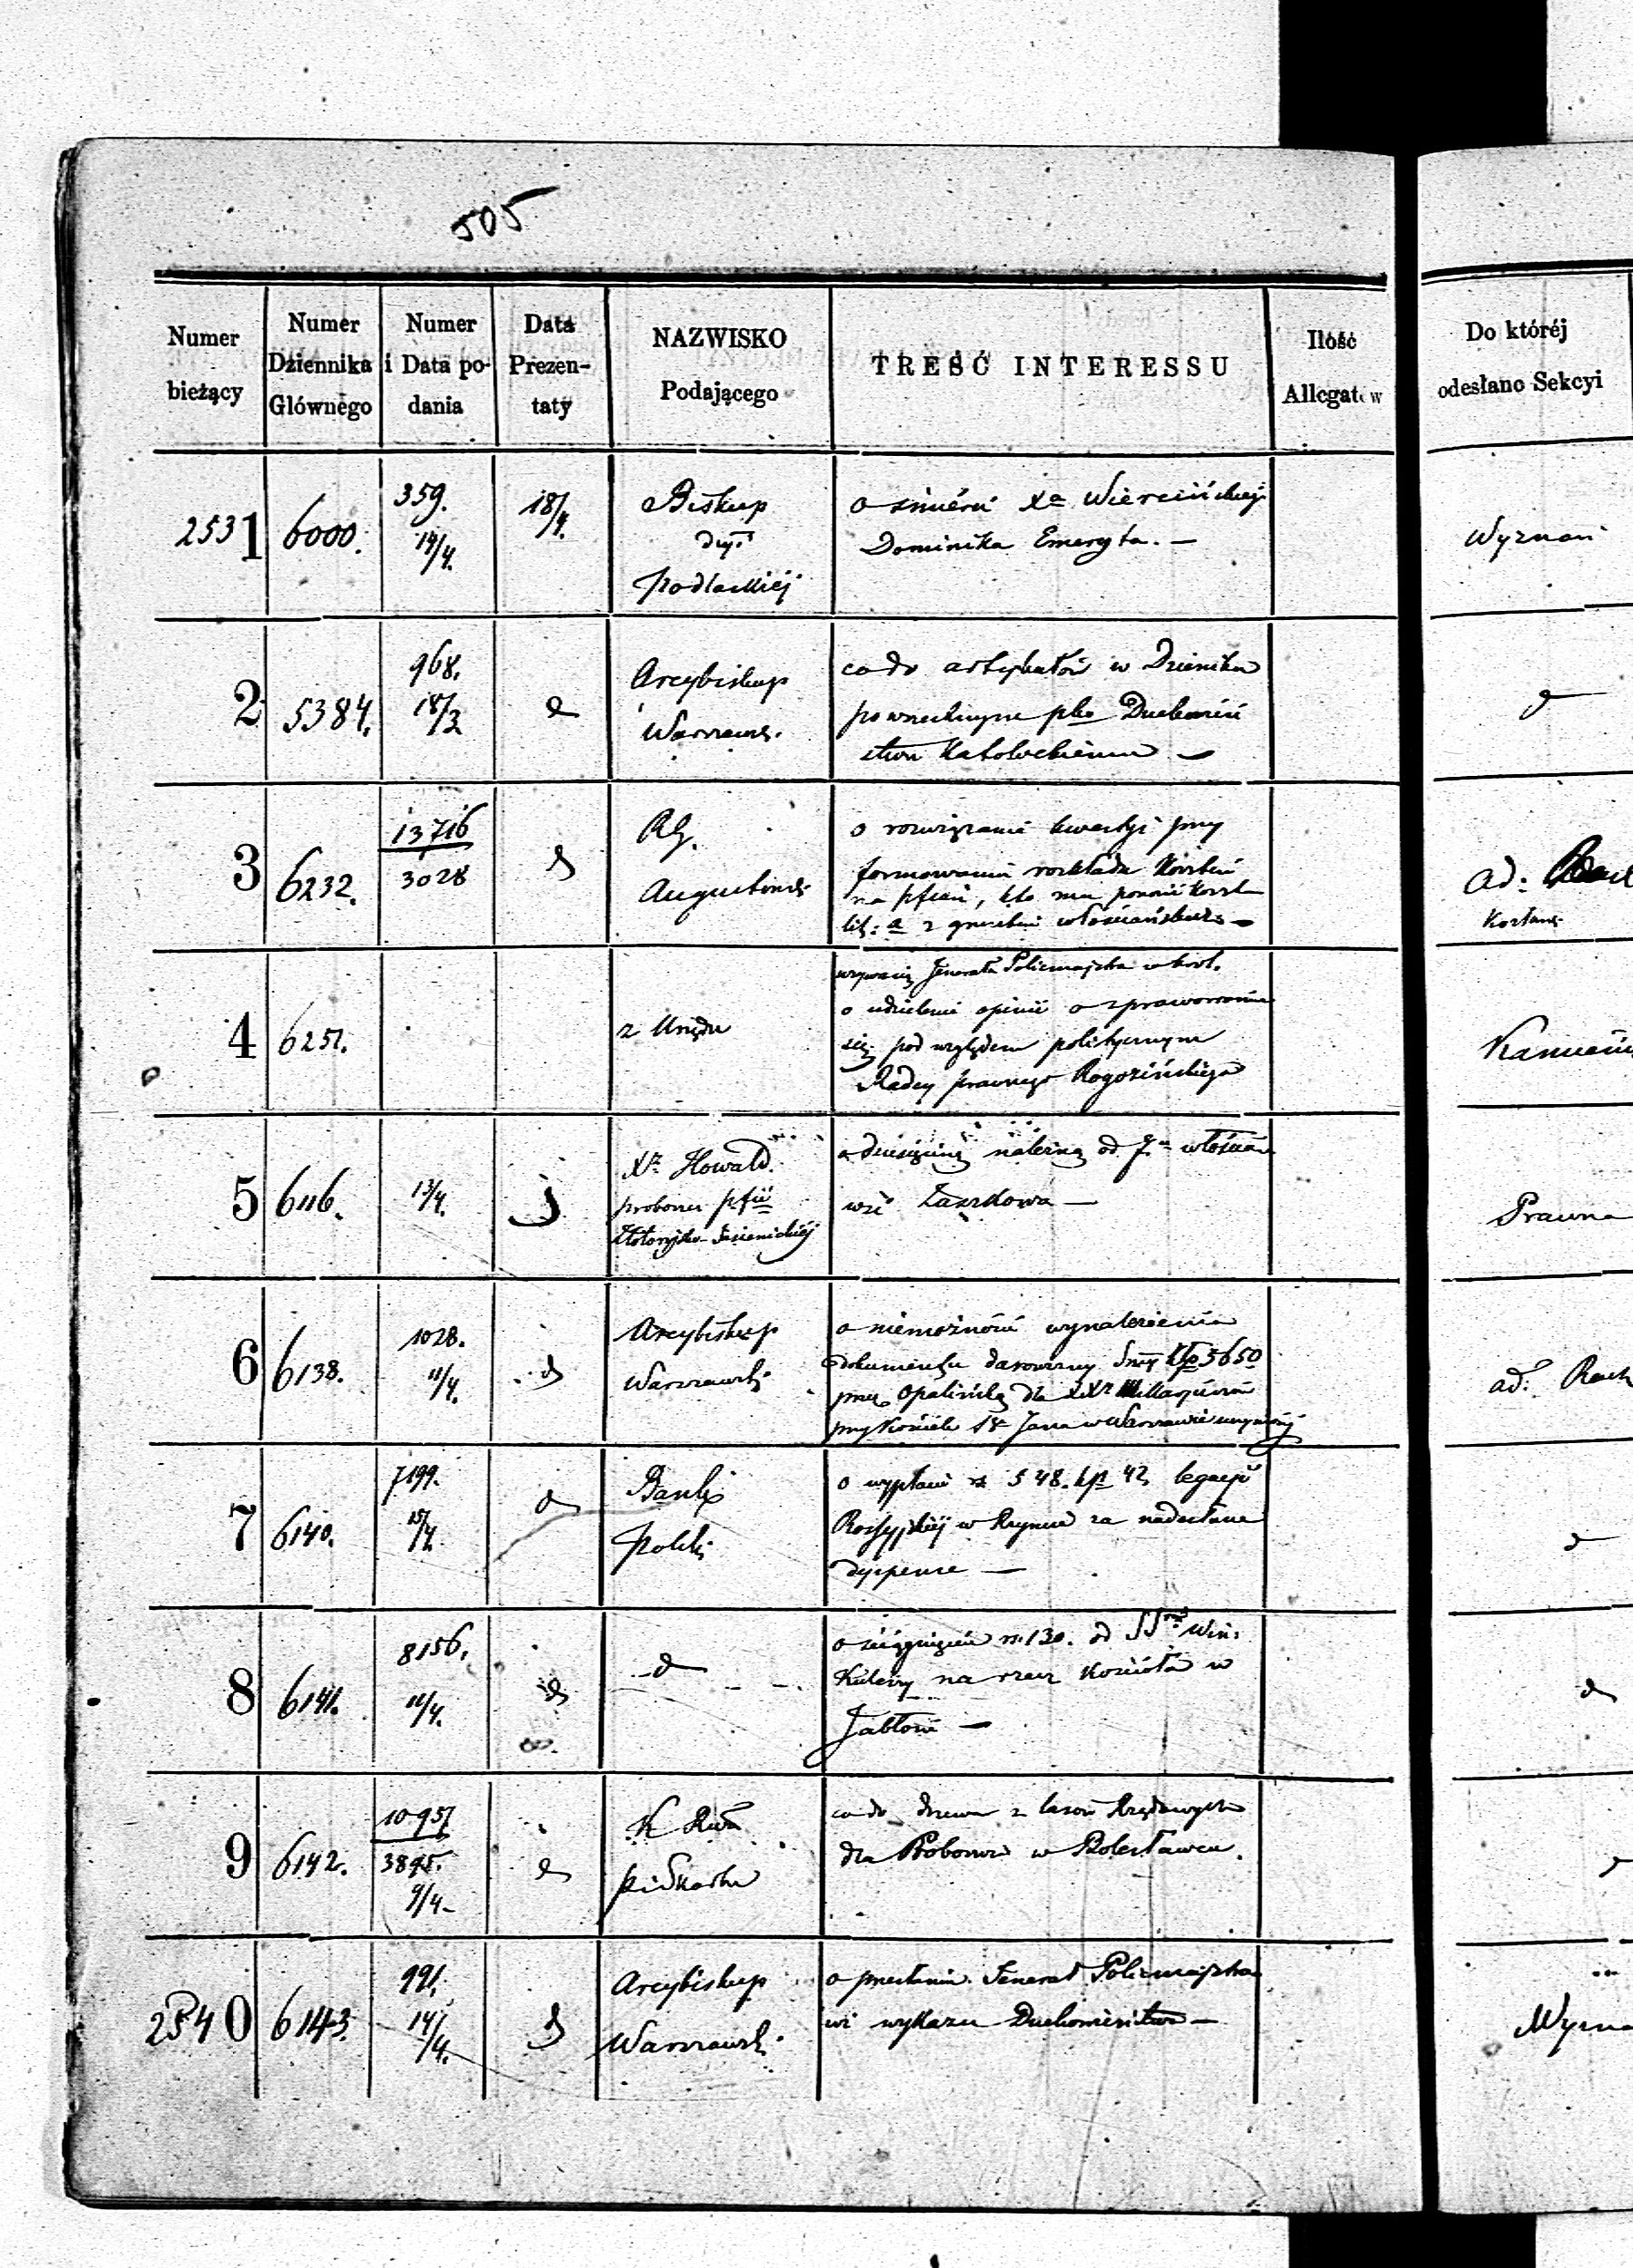 505
Numer bieżący
Numer Dziennika Głównego
Numer i Data po-dania
Data Prezen-taty
NAZWISKO Podającego
TREŚĆ INTERESSU
Ilość Allegatów
Do któréj odesłano Sekcyi
2531
6000.
359.
14/4.
18/4.
Biskup
dyi
Podlaskiej
o śmierci Xa Wiercińskiego
Dominika Emeryta. —
Wyznań
2
5384.
968.
18/3
d
Arcybiskup
Warszaws.
co do artykułów w Dzienniku
powszechnym pko Duchowień
stwu Katolickiemu —
d
3
6232.
13716
3028
d
RG.
Augustows.
o rozwiązanie kwestyi przy
formowaniu rozkładu
na pfian, kto ma ponosić
lit: a z gruntów włościańskich —
ad:
4
6251.
z Urzędu
Jenerała Policmajstra
o udzielenie opinii o sprawowaniu
się pod względem politycznym
Radcy prawnego Rogozińskiego
5
6116.
13/4.
d
Xz Howald
proboszcz pfii
o dziesięcinę należną od włościan
wsi —
Prawna
6
6138.
1028.
11/4.
d
Arcybiskup
Warszawski
o niemożności wynalezienia
dokumentu darowizny Summy 5650
przez Opalińską dla XX
przy Kościele Sgo Jana w Warszawie uczynionej
ad: Rach
7
6140.
7199.
15/4.
d
Bank
Polski
o wypłacie rs 548. kp 42 legacyi
Rossyjskiej w Rzymie za nadesłane
dyspense —
d
8
6141.
8156.
11/4.
d
d
o ściągnięcie rs. 130. od SSrów Win:
na rzecz Kościoła w
Jabłoni —
d
9
6142.
10957
3895.
9/4.
d
co do drzewa z lasów Rządowych
dla Proboszcza w Bolesławcu.
d
2540
6143.
991.
14/4.
d
Arcybiskup
Warszawski
o przesłaniu Jenerał Policmajstro
wi wykazu Duchowieństwa —